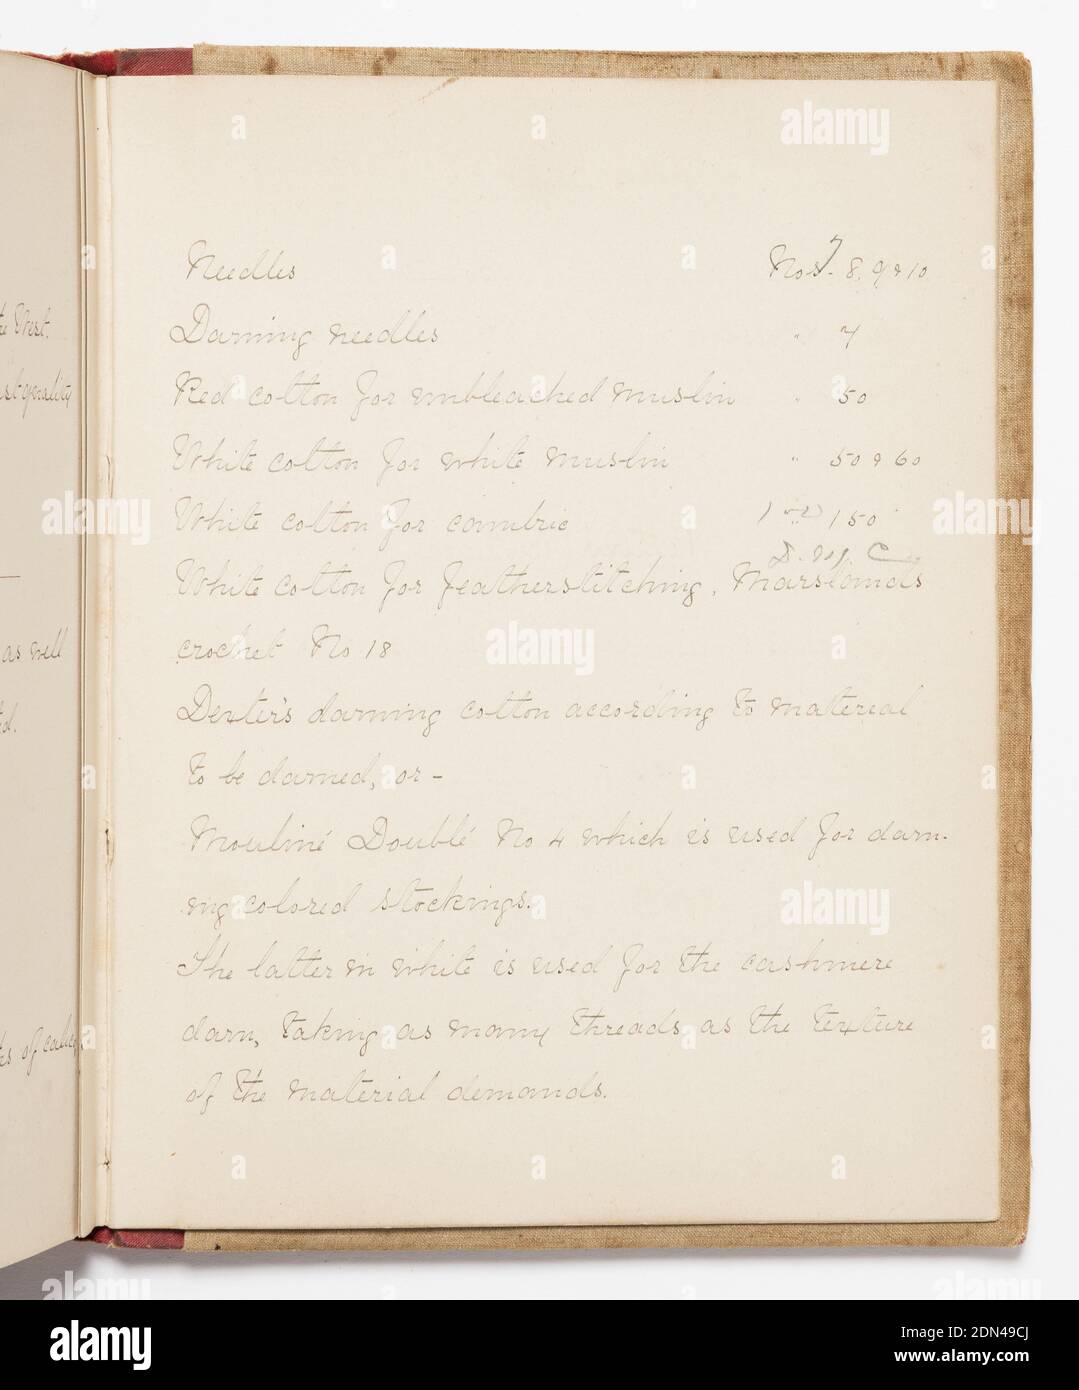 Needles Nos 7. 8, 9 & 10
Darning needles " 7
Red cotton for unbleached muslin " 50
White cotton for white muslin " 50 & 60
White cotton for cambric 150
D. M. C
White cotton for featherstitching, Marslands
crochet No 18
Dexter's darning cotton according to material
to be darned, or -
Mouliné Doublé No 4 which is used for darn-
ing colored stockings.
The latter in white is used for the cashmere
darn, taking as many threads as the texture
of the material demands.
the Vest.
quality
as well
of
alamy
Image ID: 2DN49CJ
www.alamy.com